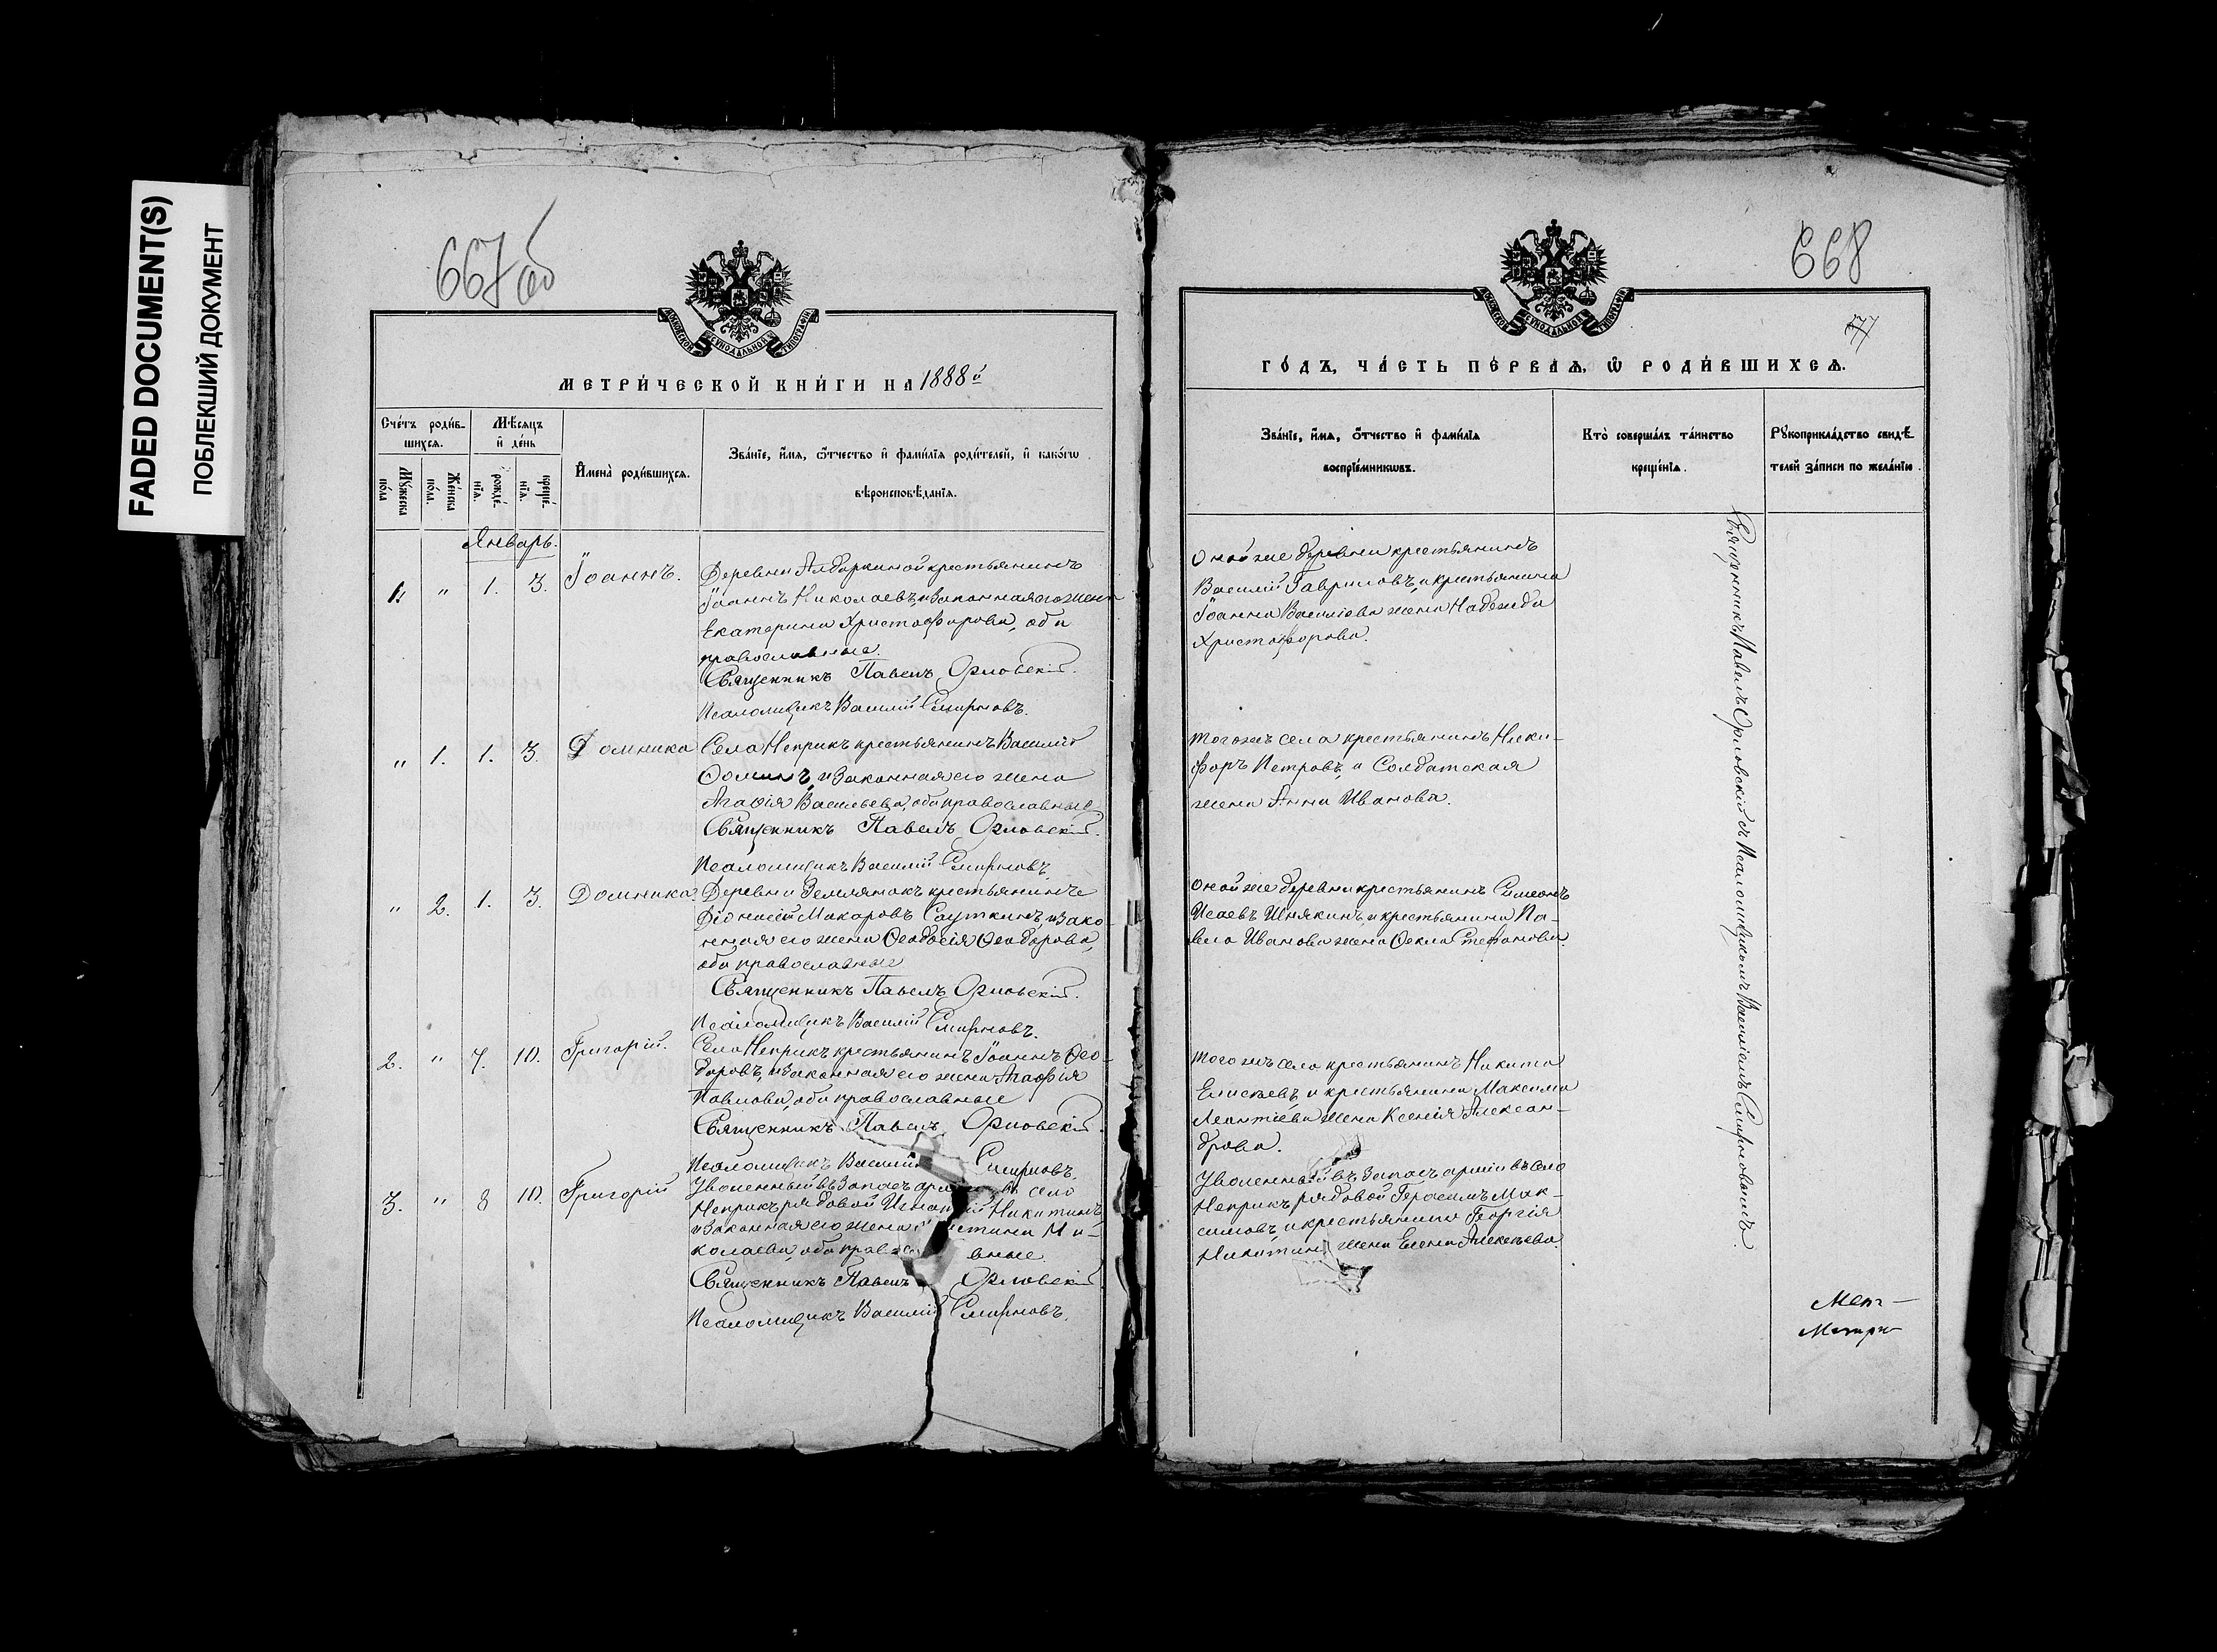 FADED DOCUMENT(S)
ПОБЛЕКШИЙ ДОКУМЕНТ
667 об
МОСКОВСКОЙ СУНОДАЛЬНОЙ ТИПОГРАФІИ
МЕТРИ́ЧЕСКОЙ КНИ́ГИ НА 1888й
Сче́тъ роди́в-
шихсѧ.
Мѣ́сѧцъ
и҆ де́нь
И҆мена̀ роди́вшихсѧ.
Зва́нїе, и҆́мѧ, ѻ҆́тчество и҆ фами́лїѧ роди́телей, и҆ како́гѡ
вѣроисповѣ́данїѧ.
Мꙋ́жеска
по́ла
Же́нска
по́ла.
рожде́-
нїѧ.
креще́-
нїѧ.
Январь.
1. " 1. 3. Іоаннъ.
Деревни Алдоркиной крестьянинъ
Іоаннъ Николаевъ, и законная его жена
Екатерина Христофорова, оба
православные.
Священникъ Павелъ Орловскій.
Псаломщикъ Василій Смирновъ.
" 1. 1. 3. Домника
Села Неприкъ крестьянинъ Василій
Ѳоминъ, и законная его жена
Агаѳія Васильева, оба православные
Священникъ Павелъ Орловскій.
Псаломщикъ Василій Смирновъ.
" 2. 1. 3. Домника.
Деревни Землянокъ крестьянинъ
Діонисій Макаровъ Сауткинъ, и зако-
нная его жена Ѳеодосія Ѳеодорова,
оба православные
Священникъ Павелъ Орловскій.
Псаломщикъ Василій Смирновъ.
2. " 7. 10. Григорій.
Села Неприкъ крестьянинъ Іоаннъ Ѳео-
доровъ, и законная его жена Агаѳія
Павлова, оба православные
Священникъ Павелъ Орловскій.
Псаломщикъ Василій Смирновъ.
3. " 8 10. Григорій
Уволенный въ запасъ арм въ село
Неприкъ рядовой Игнатій Никитинъ,
и законная его жена стина Ни-
колаева, оба прав вные
Священникъ Павелъ Орловскій
Псаломщикъ Василій Смирновъ.
668
МОСКОВСКОЙ СУНОДАЛЬНОЙ ТИПОГРАФІИ
ГО́ДЪ, ЧА́СТЬ ПЕ́РВАѦ, Ѽ РОДИ́ВШИХСѦ.
Зва́нїе, и҆́мѧ, ѻ҆́тчество и҆ фами́лїѧ
воспрїе́мникѡвъ.
Кто̀ соверша́лъ та́инство
креще́нїѧ.
Рꙋкоприкла́дство свидѣ́-
телей за́писи по жела́нїю.
Оной же деревни крестьянинъ
Василій Гавриловъ, и крестьянина
Іоанна Васильева жена Надежда
Христофорова.
Того жъ села крестьянинъ Ники-
форъ Петровъ, и Солдатская
жена Анна Иванова.
Оной же деревни крестьянинъ Симеонъ
Исаевъ Шнякинъ, и крестьянина Па-
вла Иванова жена Ѳекла Стефанова
Того жъ села крестьянинъ Никита
Елисѣевъ, и крестьянина Максима
Леонтіева жена Ксенія Алексан-
дрова.
Уволенный въ запасъ арміи въ село
Неприкъ рядовой Герасимъ Мак-
симовъ, и крестьянина Георгія
Никитина жена Елена Алексѣева.
Священникъ Павелъ Орловскій съ Псаломщикомъ Василіемъ Смирновымъ.
Мет-
Метри-